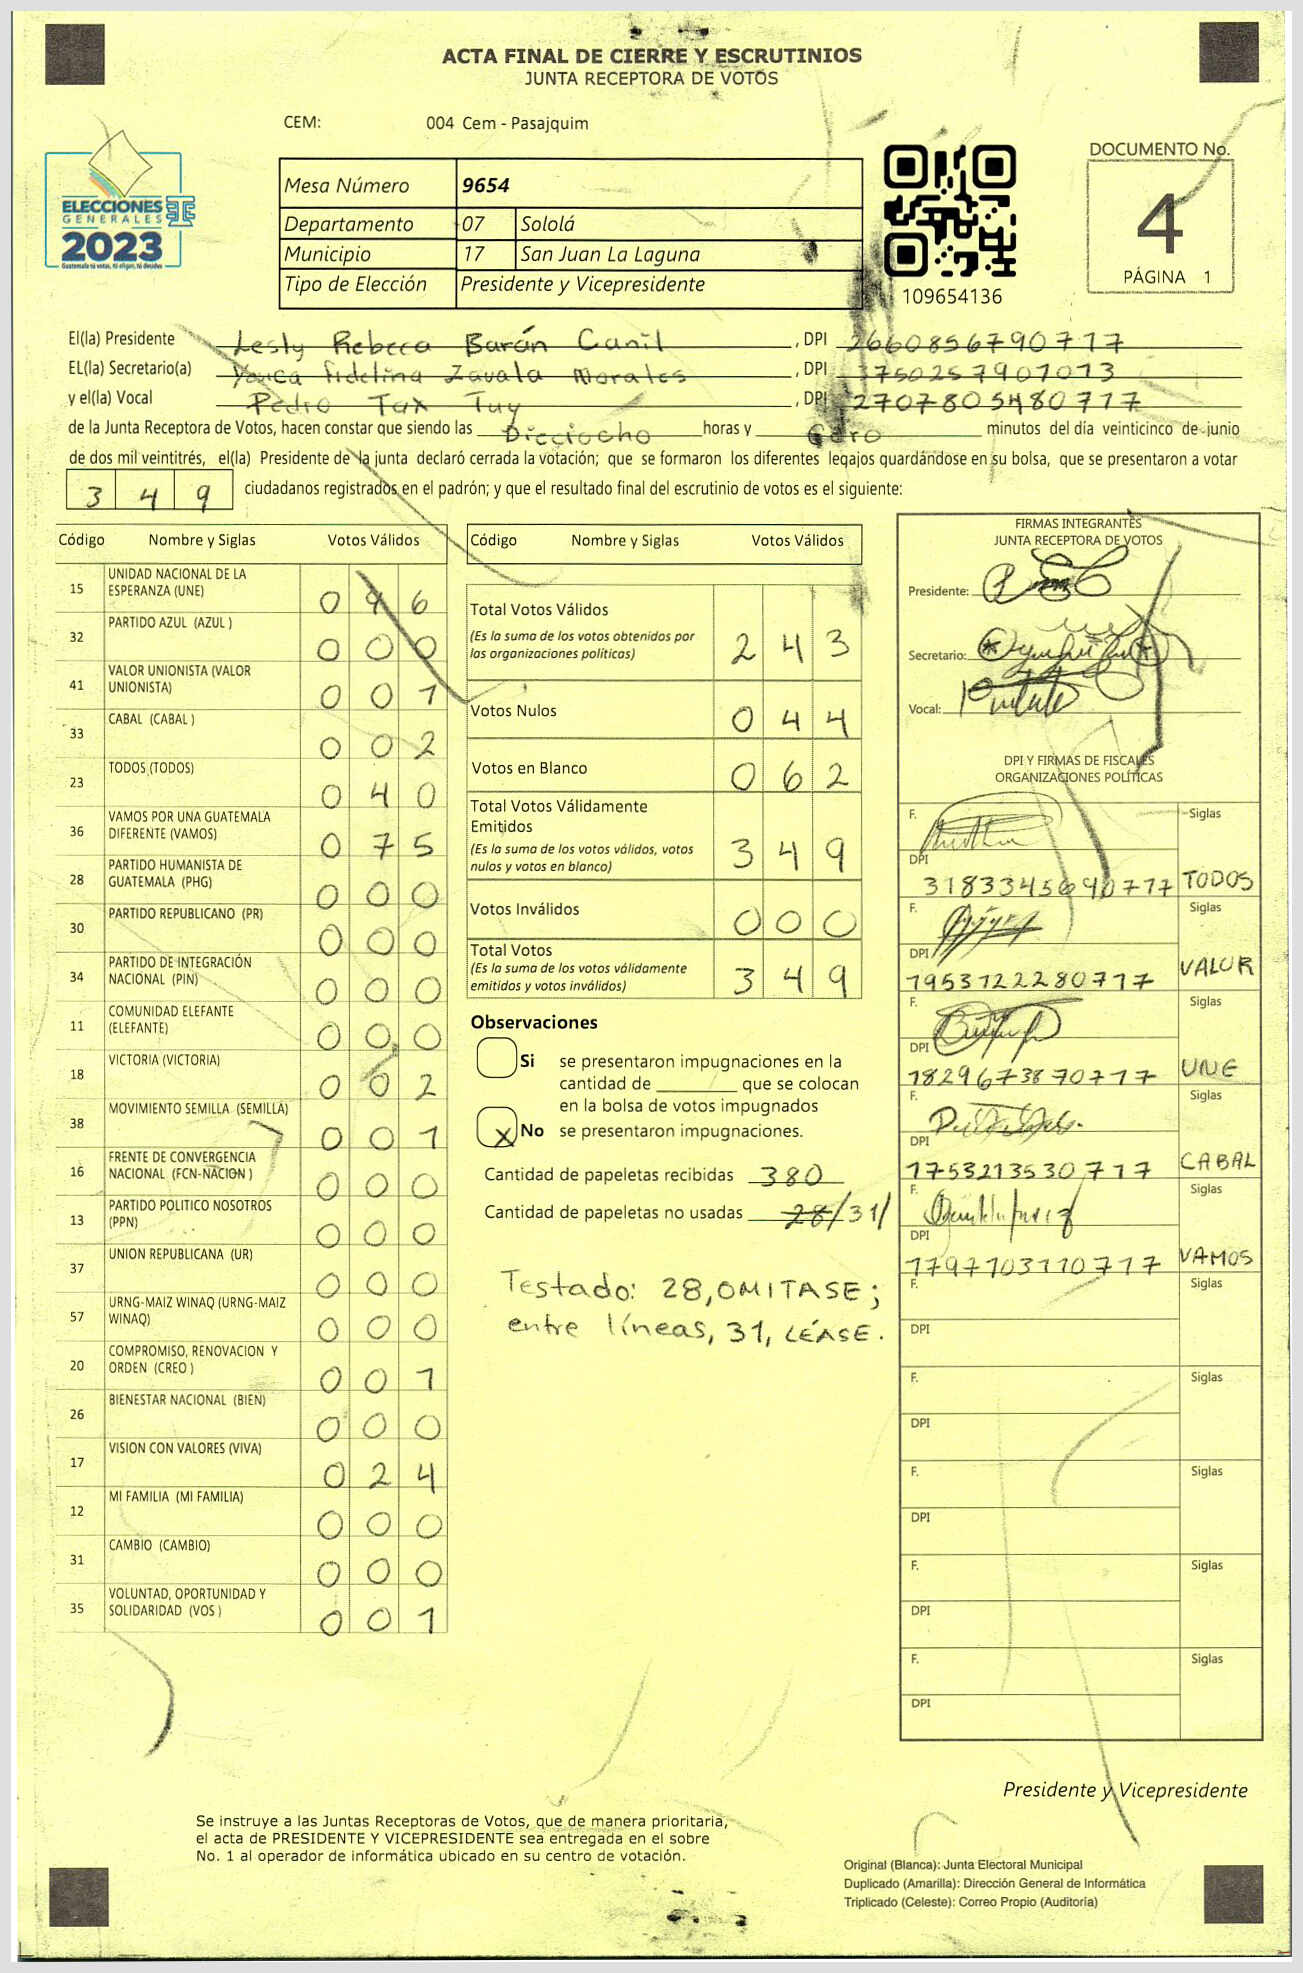 ACTA FINAL DE CIERRE Y ESCRUTINIOS
JUNTA RECEPTORA DE VOTOS
CEM: 004 Cem - Pasajquim
ELECCIONES
GENERALES
2023
Guatemala tú votas, tú eliges, tú decides
Mesa Número 9654
Departamento 07 Sololá
Municipio 17 San Juan La Laguna
Tipo de Elección Presidente y Vicepresidente
109654136
DOCUMENTO No.
4
PÁGINA 1
El(la) Presidente Lesly Rebeca Barán Canil, DPI 2660856790717
EL(la) Secretario(a) Fidelina Zavala Morales, DPI 3750257901013
y el(la) Vocal Pedro Tax Tuy, DPI 2707805480717
de la Junta Receptora de Votos, hacen constar que siendo las Dieciocho horas y Cero minutos del día veinticinco de junio
de dos mil veintitrés, el(la) Presidente de la junta declaró cerrada la votación; que se formaron los diferentes legajos guardándose en su bolsa, que se presentaron a votar
3 4 9 ciudadanos registrados en el padrón; y que el resultado final del escrutinio de votos es el siguiente:
Código Nombre y Siglas Votos Válidos
15 UNIDAD NACIONAL DE LA
ESPERANZA (UNE) 0 9 6
32 PARTIDO AZUL (AZUL ) 0 0 0
41 VALOR UNIONISTA (VALOR
UNIONISTA) 0 0 1
33 CABAL (CABAL ) 0 0 2
23 TODOS (TODOS) 0 4 0
36 VAMOS POR UNA GUATEMALA
DIFERENTE (VAMOS) 0 7 5
28 PARTIDO HUMANISTA DE
GUATEMALA (PHG) 0 0 0
30 PARTIDO REPUBLICANO (PR) 0 0 0
34 PARTIDO DE INTEGRACIÓN
NACIONAL (PIN) 0 0 0
11 COMUNIDAD ELEFANTE
(ELEFANTE) 0 0 0
18 VICTORIA (VICTORIA) 0 0 2
38 MOVIMIENTO SEMILLA (SEMILLA) 0 0 1
16 FRENTE DE CONVERGENCIA
NACIONAL (FCN-NACION ) 0 0 0
13 PARTIDO POLITICO NOSOTROS
(PPN) 0 0 0
37 UNION REPUBLICANA (UR) 0 0 0
57 URNG-MAIZ WINAQ (URNG-MAIZ
WINAQ) 0 0 0
20 COMPROMISO, RENOVACION Y
ORDEN (CREO ) 0 0 1
26 BIENESTAR NACIONAL (BIEN) 0 0 0
17 VISION CON VALORES (VIVA) 0 2 4
12 MI FAMILIA (MI FAMILIA) 0 0 0
31 CAMBIO (CAMBIO) 0 0 0
35 VOLUNTAD, OPORTUNIDAD Y
SOLIDARIDAD (VOS ) 0 0 1
Código Nombre y Siglas Votos Válidos
Total Votos Válidos 2 4 3
(Es la suma de los votos obtenidos por
las organizaciones politicas)
Votos Nulos 0 4 4
Votos en Blanco 0 6 2
Total Votos Válidamente
Emitidos 3 4 9
(Es la suma de los votos válidos, votos
nulos y votos en blanco)
Votos Inválidos 0 0 0
Total Votos 3 4 9
(Es la suma de los votos válidamente
emitidos y votos inválidos)
Observaciones
Si se presentaron impugnaciones en la
cantidad de ________ que se colocan
en la bolsa de votos impugnados
X No se presentaron impugnaciones.
Cantidad de papeletas recibidas 380
Cantidad de papeletas no usadas 28/31/
Testado: 28, OMITASE;
entre líneas, 31, LÉASE.
FIRMAS INTEGRANTES
JUNTA RECEPTORA DE VOTOS
Presidente:
Secretario:
Vocal:
DPI Y FIRMAS DE FISCALES
ORGANIZACIONES POLÍTICAS
F. Siglas
DPI
3183345690717 TODOS
F. Siglas
DPI
1953122280717 VALOR
F. Siglas
DPI
1829673870717 UNE
F. Siglas
DPI
1753213530717 CABAL
F. Siglas
DPI
1797103110717 VAMOS
F. Siglas
DPI
F. Siglas
DPI
F. Siglas
DPI
F. Siglas
DPI
F. Siglas
DPI
Presidente y Vicepresidente
Se instruye a las Juntas Receptoras de Votos, que de manera prioritaria,
el acta de PRESIDENTE Y VICEPRESIDENTE sea entregada en el sobre
No. 1 al operador de informática ubicado en su centro de votación.
Original (Blanca): Junta Electoral Municipal
Duplicado (Amarilla): Dirección General de Informática
Triplicado (Celeste): Correo Propio (Auditoría)